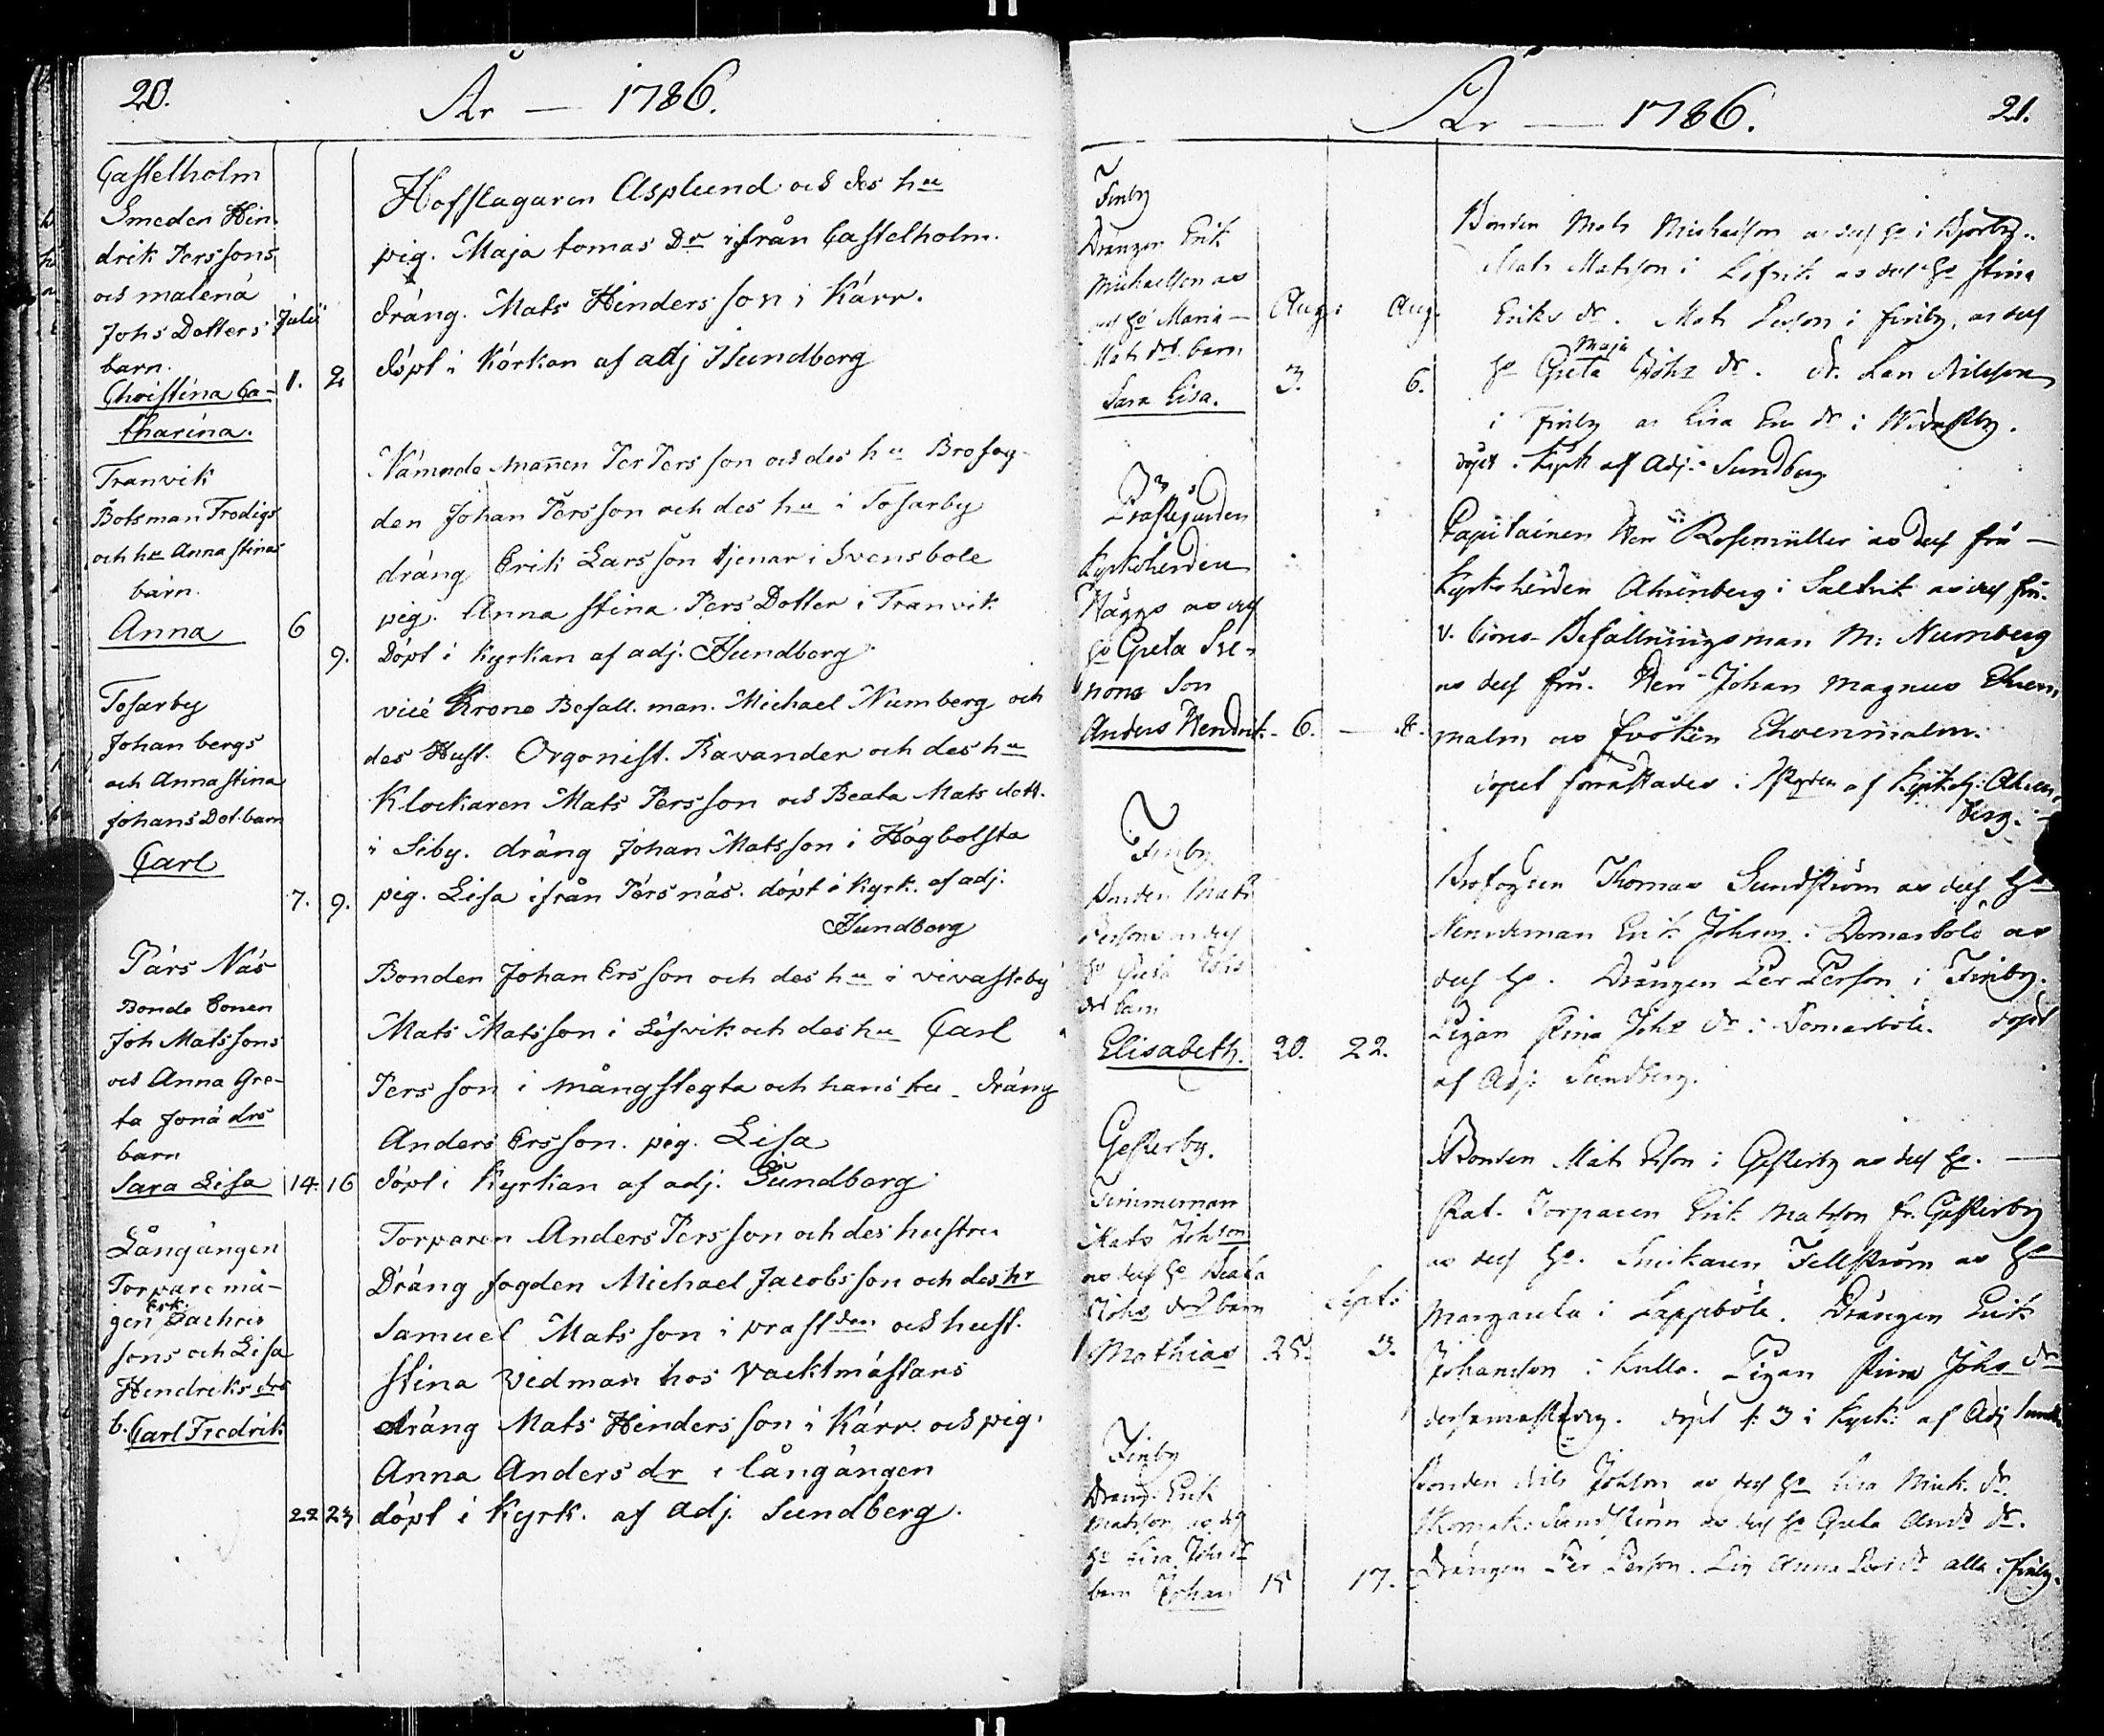 20.
År — 1786.
Castelholm
Smeden Hin-
drik Perssons
och malena
Johs Dotters
barn.
Christina Ca-
tharina.
Julii
1. 2
Hofslagaren Asplund och des hu
pig. Maja tomas Dr ifrån Castelholm.
dräng. Mats Hindersson i Kärr.
döpt i Körkan af adj Sundberg
Tranvik
Botsman Trodigs
och hu Anna stinas
barn.
Anna
6
9.
Nämndemannen Per Persson och des hu Brofog-
den Johan Persson och des hu i Tosarby
dräng Erik Larsson tjenar i Svensbole
pig. Anna stina Pers Dotter i Tranvik
döpt i Kyrkan af adj. Sundberg
Tosarby
Johan bergs
och Anna stina
Johans Dot. barn
Carl
7. 9.
vice Krono Befall. man. Michael Numberg och
des Hust. Orgonist. Ravander och des hu
Klockaren Mats Persson och Beata Mats dott.
i Siby. dräng Johan Matsson i Högbolsta
pig. Lisa ifrån Persnäs. döpt i Kyrk. af adj.
Sundberg
Pärs Näs
Bonde Sonen
Joh Matssons
och Anna Gre-
ta Jona drs
barn
Sara Lisa
14. 16
Bonden Johan Ersson och des hu i vivasteby
Mats Matsson i Lösvik och des hu Carl
Persson i mångstegta och hans hu dräng
Anders Ersson. pig. Lisa
döpt i Kyrkan af adj. Sundberg
Långängen
Torpare må-
gen Erk. Zachris
sons och Lisa
Hendriks drs
b. Carl Fredrik
22 23
Torparen Anders Persson och des hustru
Dräng fogden Michael Jacobsson och des hr
Samuel Matsson i prastden och hust.
Stina Vidman hos Vacktmästans
dräng Mats Hindersson i Kärr och pig.
Anna Anders dr i långängen
döpt i Kyrk. af adj. Sundberg.
År — 1786.
21.
Finby
Drängen Erik
Michaelson as
des ho Maria
Mats dot. barn
Sara Lisa.
Aug: Aug.
3. 6.
Bonden Mats Michaelson as des ho i
Mats Matsson i Lösvik as des ho Stina
Eriks dr. Mats Persson i Finby, as des
ho Greta Maja Johs dr. dr. Lars Nilsson
i Finby as Lisa Ers dr i
döpt i Kyrk af Adj: Sundberg
Prästegården
Kyrkoherden
Häggs as des
ho Greta Sve-
nons Son
Anders Hendrik.
6. — 8.
Capitainen Herr Rosenmüller as des fru —
Kyrkoherden Ahrenberg i Saltvik as des fru.
v. Crono-Befallningsman M: Numberg
as des fru. Herr Johan Magnus Ehren-
malm as fröken Ehrenmalm.
döpet förrättades i Pstgrden af Kyrkohj: Ahren-
berg.
Finby
Bonden Mats
Perssons as des
ho Greta Johs
drs barn
Elisabeth.
20. 22.
Brofogden Thomas Sundström as des ho
Nemdeman Erik Johsson i Domarböle as
des ho. Drängen Per Persson i Finby.
Pigan Stina Johs dr i Domarböle. döpt
af Adj: Sundberg.
Gesterby.
Timmerman
Mats Johson
as des ho Beata
Johs dot barn
Mathias
Sept:
25. 3.
Bonden Mats Ersson i Gesterby as des ho. —
Rat. Torparen Erik Matsson fr. Gesterby
as des ho. Snickaren Fellström as ho
Margareta i Lappböle. Drängen Erik
Johansson i Kulla. Pigan Stina Johs dr
dersammast. döpt d: 3 i Kyrk: af Adj
Finby
Dräng. Erik
Matsson as des
ho Lisa Johs dr
barn Johan
15 17.
Bonden Nils Johson as des ho Lisa Mick. dr.
Thomas: Sundström as des ho Greta Ands dr.
Drängen Per Persson. Pig Anna Pers dr alla i Finby.